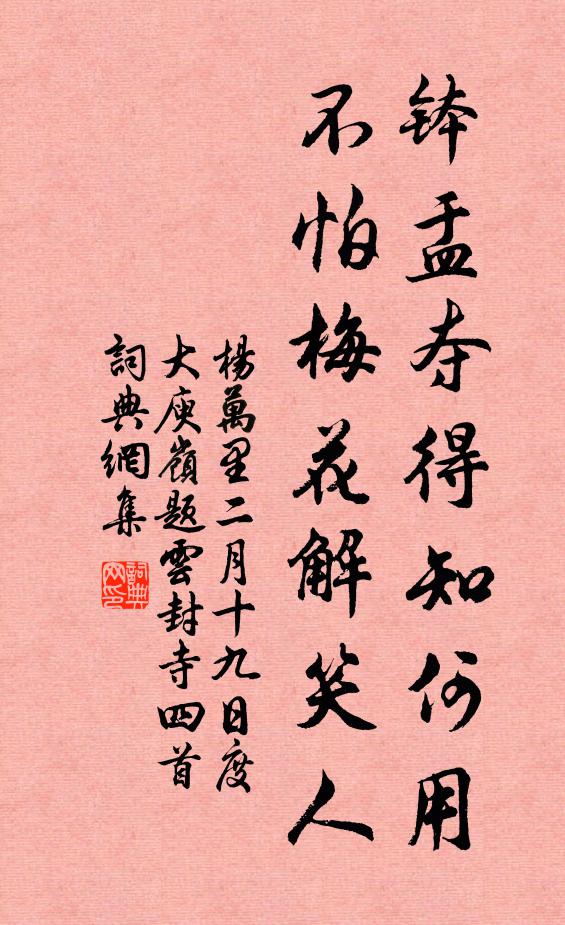 钵盂夺得知何用
不怕梅花解笑人
楊萬里二月十九日度
大庾嶺题雲封寺四首
詞典網集
詞典
网印